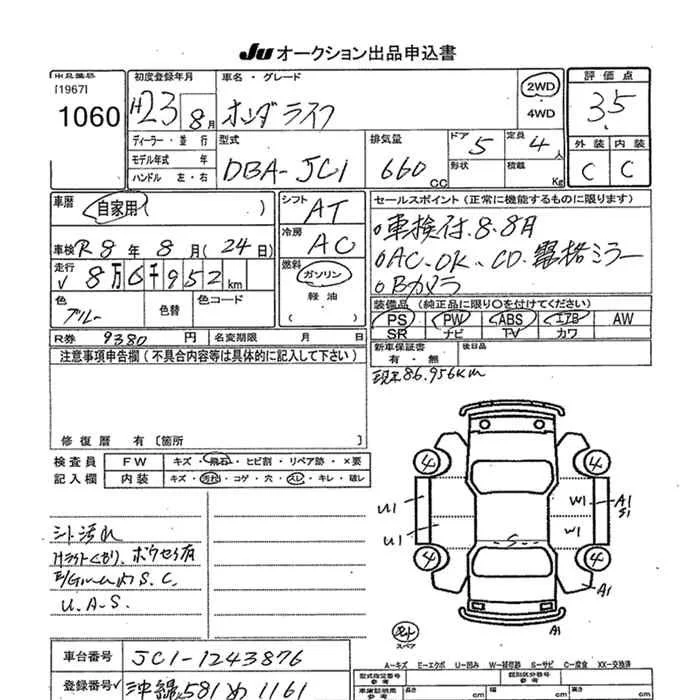 JU オークション出品申込書
[1967]
1060
初度登録年月
H23 8月
車名・グレード
ホンダ ライフ
2WD
4WD
評価点
3.5
外装 内装
C C
ディーラー・並行
モデル年式 年
ハンドル 左・右
型式
DBA-JC1
排気量
660cc
ドア 5
形状
定員 4人
積載 Kg
車歴 自家用( )
車検 R8年 8月(24日)
走行 8万6千952km
色 ブルー
色替
色コード
シフト AT
冷房 AC
燃料 ガソリン
軽油
( )
セールスポイント(正常に機能するものに限ります)
車検付.8.8月
AC.OK、CD.電格ミラー
Bカメラ
装備品(純正品に限り〇を付けてください)
PS PW ABS エアB AW
SR ナビ TV カワ
R券 9380円
名変期限 月 日
新車保証書 有・無
後日品
現車86.956km
注意事項申告欄(不具合内容等は具体的に記入して下さい)
修復歴 有〔箇所 〕
検査員記入欄
FW キズ・飛石・ヒビ割・リペア跡・×要
内装 キズ・汚れ・コゲ・穴・スレ・キレ・破レ
シート汚れ
Hライトくもり、ボウセイ有
S.C.
U.A.S.
4 4
4 4
U1
U1
W1
W1
A1
S1
S
A1
A1
スペア
A-キズ E-エクボ U-凹み W-補修跡 S-サビ C-腐食 XX-交換済
車台番号 JC1-1243876
登録番号 沖縄 581 め 1161
型式指定番号 参考
類別区分番号 参考
車庫証明 参考 長さ cm cm cm